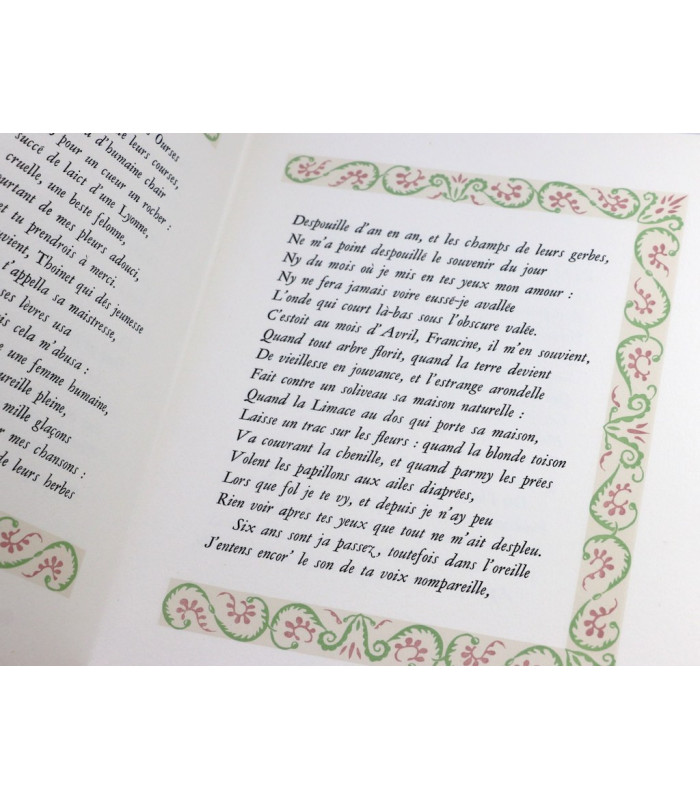 Ourses
de leurs courses,
d'humaine chair
pour un cueur un rocher :
succé de laict d'une Lyonne,
cruelle, une beste felonne,
pourtant de mes pleurs adouci,
et tu prendrois à merci.
Thoinet qui dés jeunesse
t'appella sa maistresse,
ses lèvres usa
cela m'abusa :
une femme humaine,
pleine,
mille glaçons
mes chansons :
de leurs herbes
Despouille d'an en an, et les champs de leurs gerbes,
Ne m'a point despouillé le souvenir du jour
Ny du mois où je mis en tes yeux mon amour :
Ny ne fera jamais voire eussé-je avallée
L'onde qui court là-bas sous l'obscure valée.
C'estoit au mois d'Avril, Francine, il m'en souvient,
Quand tout arbre florit, quand la terre devient
De vieillesse en jouvance, et l'estrange arondelle
Fait contre un soliveau sa maison naturelle :
Quand la Limace au dos qui porte sa maison,
Laisse un trac sur les fleurs : quand la blonde toison
Va couvrant la chenille, et quand parmy les prées
Volent les papillons aux ailes diaprées,
Lors que fol je te vy, et depuis je n'ay peu
Rien voir apres tes yeux que tout ne m'ait despleu.
Six ans sont ja passez, toutefois dans l'oreille
J'entens encor' le son de ta voix nompareille,